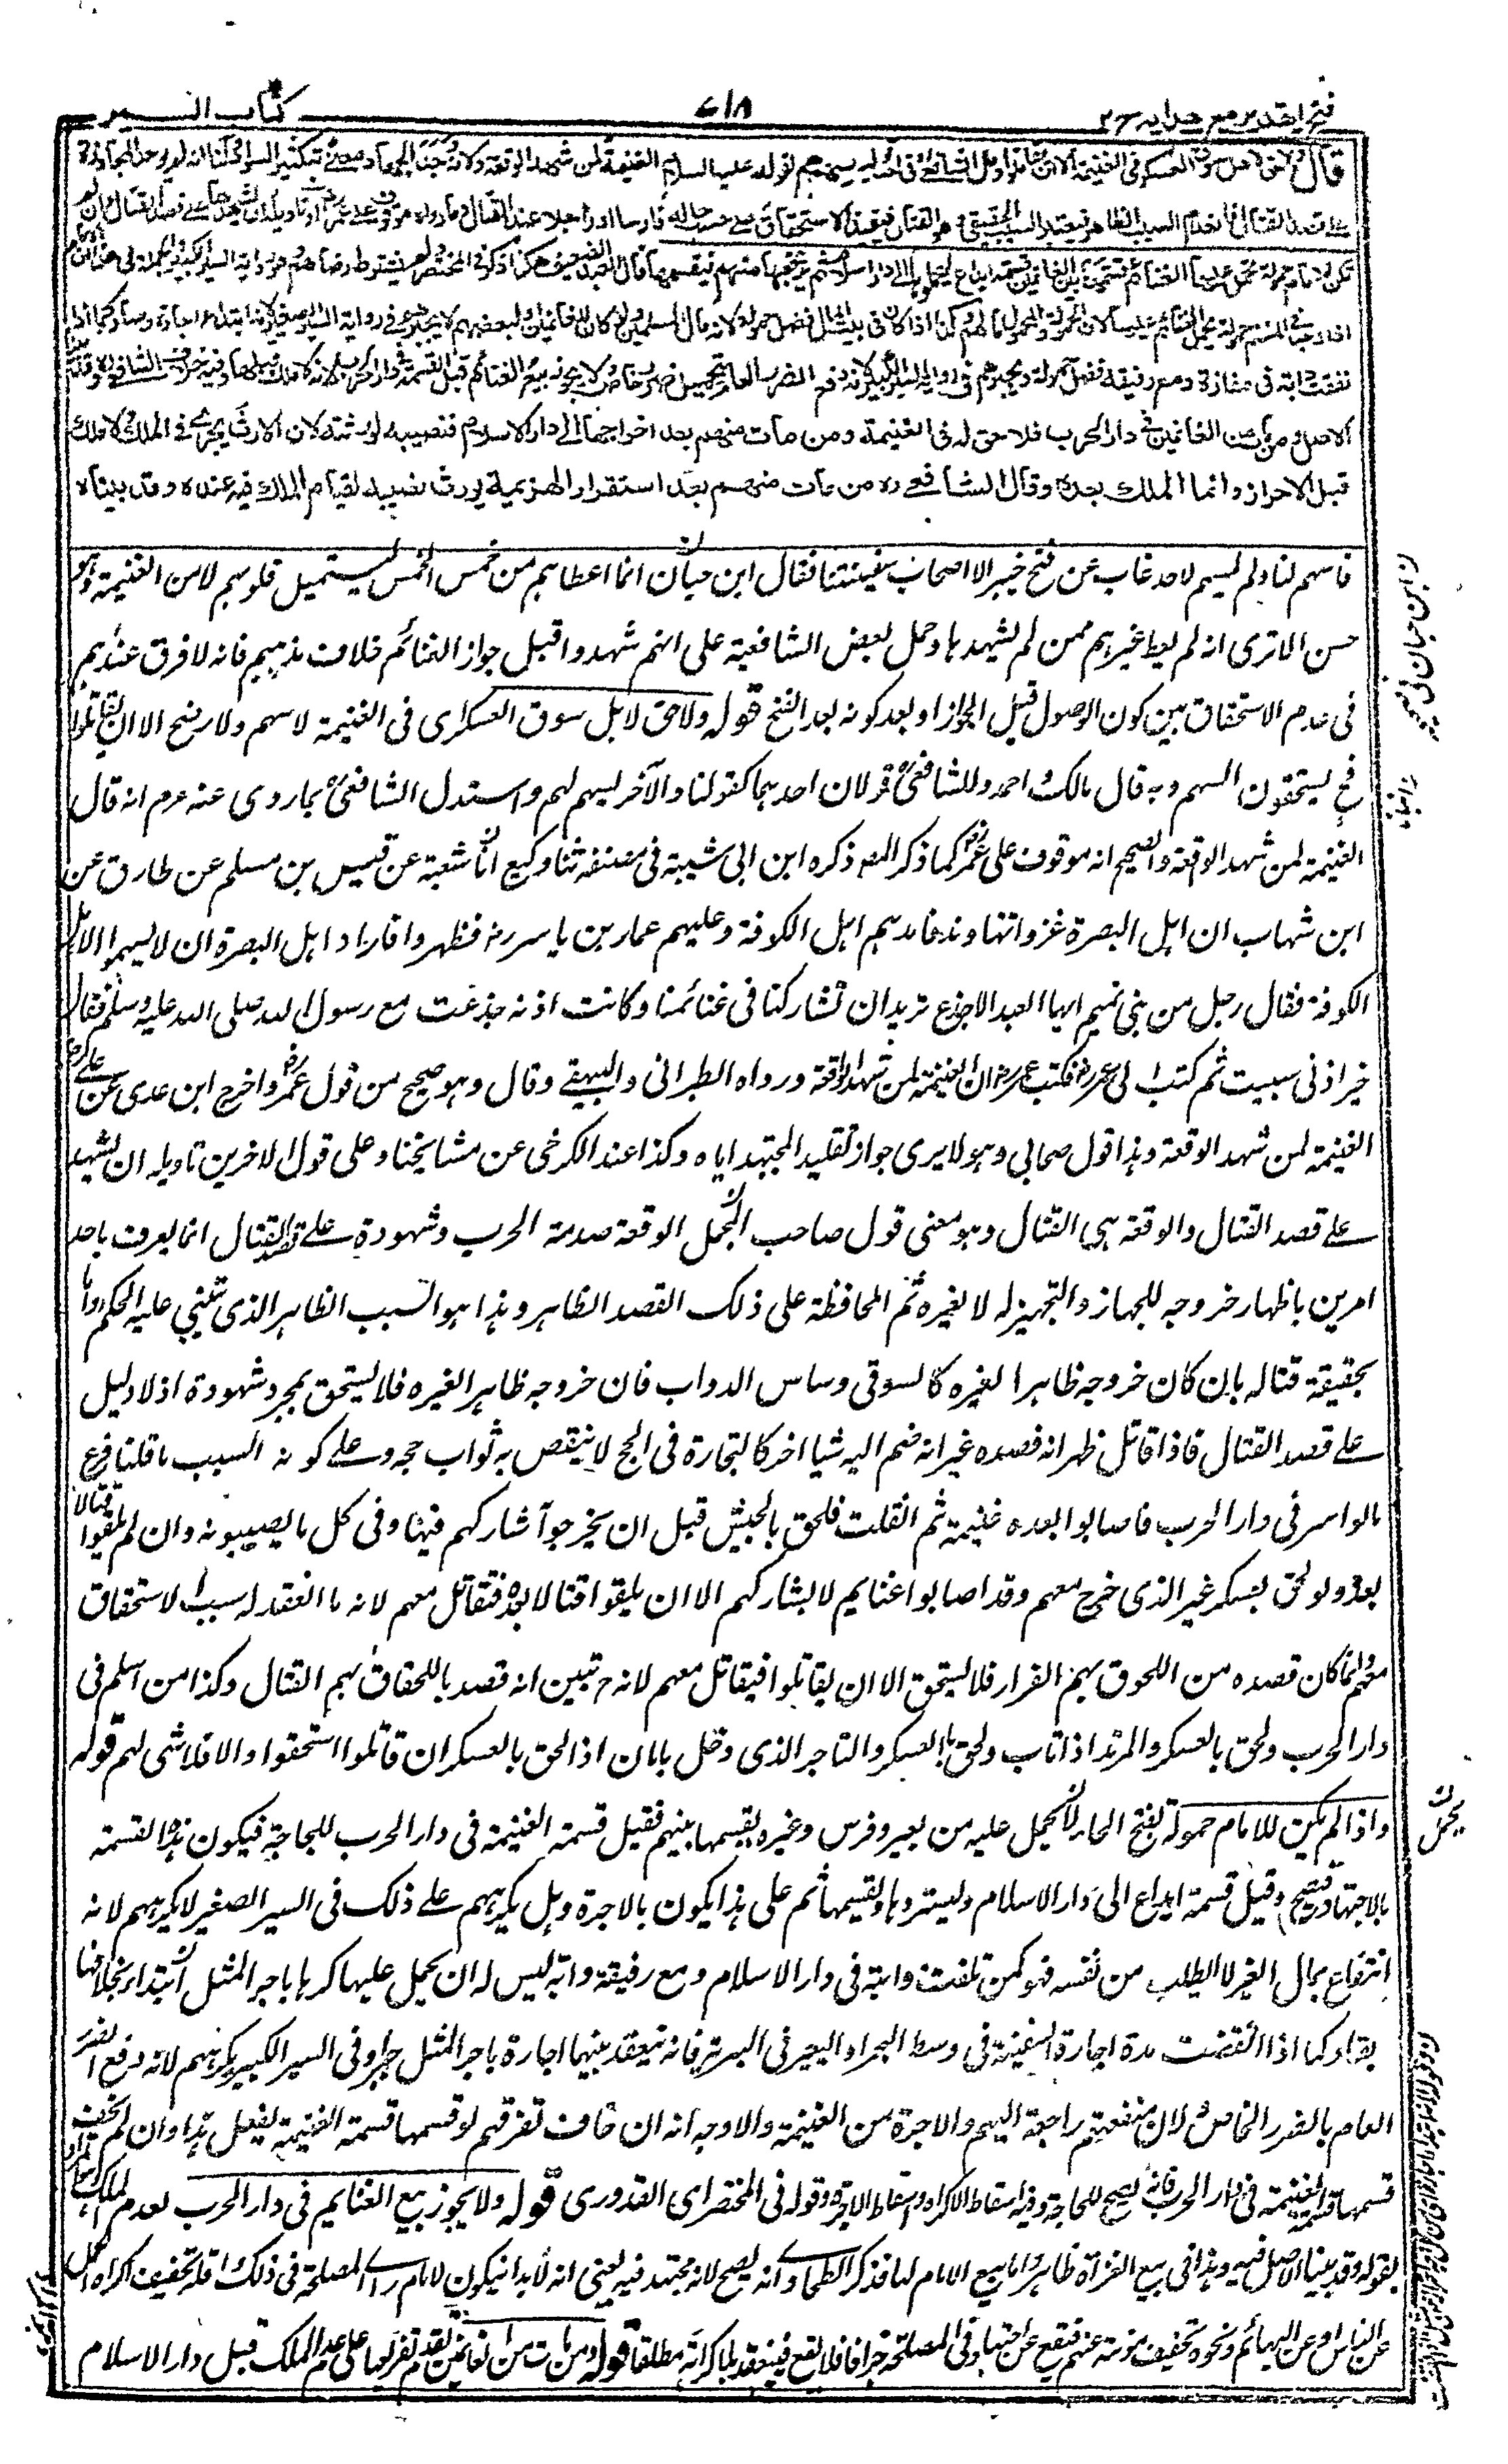 فتح القدير مع هدايه ج ٢
٧١٨
كتاب السير
قال ولا حق لاهل سوق العسكر فى الغنيمة الا ان يقاتلوا وقال الشافعى فى احد قوليه يسهم لهم لقوله عليه السلام الغنيمة لمن شهد الوقعة ولانه وجد الجهاد معنى بتكثير السواد ولنا انه لم يوجد المجاوزة
على قصد القتال فانعدم السبب الظاهر فيعتبر السبب الحقيقى وهو القتال فيفيد الاستحقاق على حسب حاله فارسا او راجلا عند القتال وما رواه موقوف على عمر او تاويله ان يشهدها على قصد القتال وان لم
تكن للامام حمولة تحمل عليها الغنائم قسمها بين الغانمين قسمة ايداع ليحملوها الى دار الاسلام ثم يرتجعها منهم فيقسمها قال العبد الضعيف هكذا ذكر فى المختصر ولم يشترط رضاهم وهو رواية السير الكبير والجملة فى هذا ان الامام
اذا وجد فى المغنم حمولة يحمل الغنائم عليها لان الحمولة والمحمول مالهم وكذا اذا كان فى بيت المال فضل حمولة لانه مال المسلمين ولو كان للغانمين او لبعضهم لا يجبرهم فى رواية السير الصغير لانه ابتداء اجارة وصار كما اذا
نفقت دابته فى مفازة ومع رفيقه فضل حمولة ويجبرهم فى رواية السير الكبير لانه دفع الضرر العام بتحميل ضرر خاص ولا يجوز بيع الغنائم قبل القسمة فى دار الحرب لانه لا ملك قبلها وفيه خلاف الشافعى وقد بينا
الاصل ومن مات من الغانمين فى دار الحرب فلا حق له فى الغنيمة ومن مات منهم بعد اخراجها الى دار الاسلام فنصيبه لورثته لان الارث يجرى فى الملك ولا ملك
قبل الاحراز وانما الملك بعده وقال الشافعى ره من مات منهم بعد استقرار الهزيمة يورث نصيبه لقيام الملك فيه عنده وقد بيناه
فاسهم لنا ولم يسهم لاحد غاب عن فتح خيبر الا اصحاب سفينتنا فقال ابن حبان انما اعطاهم من خمس الخمس ليستميل قلوبهم لا من الغنيمة وهو
حسن الا ترى انه لم يعط غيرهم ممن لم يشهدها وحمل بعض الشافعية على انهم شهدوا قبل حواز الغنائم خلاف مذهبهم فانه لا فرق عندهم
فى عدم الاستحقاق بين كون الوصول قبل الحواز او بعد كونه بعد الفتح قوله ولا حق لاهل سوق العسكر اى فى الغنيمة لا سهم ولا رضخ الا ان يقاتلوا
فح يستحقون السهم وبه قال مالك واحمد وللشافعى قولان احدهما كقولنا والآخر يسهم لهم واستدل الشافعى بما روى عنه عم انه قال
الغنيمة لمن شهد الوقعة والصحيح انه موقوف على عمر كما ذكر المص ذكره ابن ابى شيبة فى مصنفه ثنا وكيع انا شعبة عن قيس بن مسلم عن طارق عن
ابن شهاب ان اهل البصرة غزوا نهاوند فامدهم اهل الكوفة وعليهم عمار بن ياسر رض فظهروا فاراد اهل البصرة ان لا يسهموا لاهل
الكوفة فقال رجل من بنى تميم ايها العبد الاجذع تريد ان تشاركنا فى غنائمنا وكانت اذنه جذعت مع رسول الله صلى الله عليه وسلم فقال
خير اذنى سببت ثم كتب الى عمر رض فكتب عمر رض ان الغنيمة لمن شهد الوقعة ورواه الطبرانى والبيهقى وقال وهو صحيح من قول عمر واخرج ابن عدى عن على كرم
الغنيمة لمن شهد الوقعة وهذا قول صحابى وهو لا يرى جواز تقليد المجتهد اياه وكذا عند الكرخى عن مشايخنا وعلى قول الاخرين تاويله ان يشهد
على قصد القتال والوقعة هى القتال وهو معنى قول صاحب المجمل الوقعة صدمة الحرب وشهوده على قصد القتال انما يعرف باحد
امرين باظهار خروجه للجهاز والتجهيز له لا لغيره ثم المحافظة على ذلك القصد الظاهر وهذا هو السبب الظاهر الذى يبتنى عليه الحكم واما
بحقيقة قتاله بان كان خروجه ظاهرا لغيره كالسوقى وساس الدواب فان خروجه ظاهر الغيره فلا يستحق بمجرد شهوده اذ لا دليل
على قصد القتال فاذا قاتل ظهر انه قصده غير انه ضم اليه شيا اخر كالتجارة فى الحج لا ينقص به ثواب حجه وعلى كونه السبب ما قلنا فرع
مالو اسر فى دار الحرب فاصابوا بعده غنيمة ثم انفلت فلحق بالجيش قبل ان يخرجوا شاركهم فيها وفى كل ما يصيبونه وان لم يلقوا قتالا
بعده ولو لحق بعسكر غير الذى خرج معهم وقد اصابوا غنايم لا يشاركهم الا ان يلقوا قتالا بعده فتقاتل معهم لانه ما انعقد له سبب الاستحقاق
معهم وانما كان قصده من اللحوق بهم الفرار فلا يستحق الا ان يقاتلوا فيقاتل معهم لانه ح تبين انه قصد باللحاق بهم القتال وكذا من اسلم فى
دار الحرب ولحق بالعسكر والمرتد اذا تاب ولحق بالعسكر والتاجر الذى دخل بامان اذا لحق بالعسكر ان قاتلوا استحقوا والا فلا شى لهم قوله
واذا لم يكن للامام حمولة بفتح الحاء لان يحمل عليه من بعير وفرس وغيره يقسمها بينهم فقيل قسمة الغنيمة فى دار الحرب للحاجة فيكون هذه القسمة
بالاجتهاد فتصح وقيل قسمة ايداع الى دار الاسلام وليستردها ويقسمها ثم على هذا يكون بالاجرة وهل يكرههم على ذلك فى السير الصغير لا يكرههم لانه
انتفاع بمال الغير لا الطلب من نفسه فهو كمن تلفت دابته فى دار الاسلام ومع رفيقه دابة ليس له ان يحمل عليها كرها باجر المثل ابتداء بخلافها
بقاء كما اذا انقضت مدة اجارة السفينة فى وسط البحر او البعير فى البرية فانه ينعقد بينهما اجارة باجر المثل جبرا وفى السير الكبير يكرههم لانه دفع الضرر
العام بالضرر الخاص لان منفعتهم راجعة اليهم والاجرة من الغنيمة والاوجه انه ان خاف تفرقهم لو قسمها قسمة الغنيمة يفعل هذا وان لم يخف
قسمها قسمة الغنيمة فى دار الحرب فانه يصح للحاجة وفيه اسقاط الاكراه واسقاط الاجرة وقوله فى المختصر اى القدورى قوله ولا يجوز بيع الغنايم فى دار الحرب لعدم الملك
بقوله وقد بينا الاصل فيه وهذا فى بيع الغزاة ظاهر واما بيع الامام لها فذكر الطحاوى انه يصح لانه مجتهد فيه يعنى انه لابد ان يكون للامام راى المصلحة فى ذلك اقله تخفيف اكراه الحمل
عن الناس او عن البهائم ونحوه تخفيف مؤنة عنهم فيقع عن اجتهاد فى المصلحة جزافا فلا يقع فينعقد بلا كراهة مطلقا قوله ومن مات من الغانمين لتقدم تفريعها على عدم الملك قبل دار الاسلام